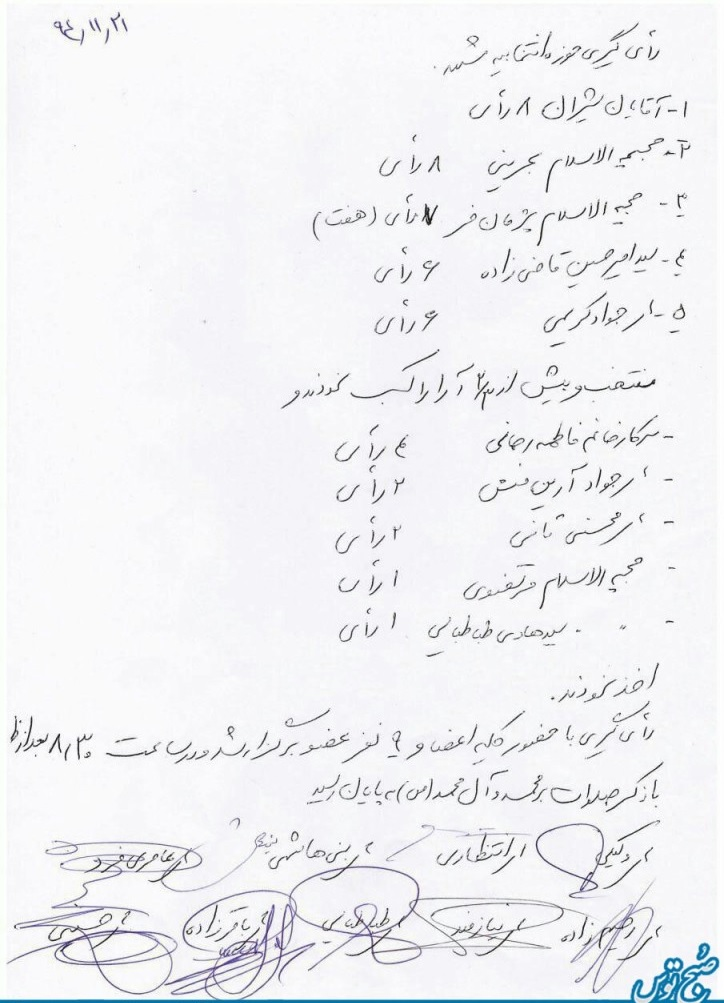 ۹۴/۱۱/۲۱
رأی گیری حوزه انتخابیه مشهد.
۱- آقایان شیران ۸ رأی
۲- حجیه الاسلام بحرینی ۸ رأی
۳- حجیه الاسلام پژمان فر ۷ رأی (هفت)
۴- سید امیر حسین قاضی زاده ۶ رأی
۵- جواد کریمی ۶ رأی
منتخب و بیش از ۲/۳ آرا را کسب نمودند و
- سرکار خانم فاطمه رحمانی ۴ رأی
- جواد آرین منش ۲ رأی
- محسنی ثانی ۲ رأی
- حجیه الاسلام مرتضوی ۱ رأی
- " - سید هادی طباطبائی ۱ رأی
اخذ نمودند.
رأی گیری با حضور کلیه اعضا و ۹ نفر عضو برگزار شد و در ساعت ۸/۳۰ بعد از
با ذکر صلوات بر محمد و آل محمد (ص) به پایان رسید
وکیلی انتظاری بنی هاشمی عامری فرد
رحیم زاده نیازمند طباطبایی باقرزاده حسینی
صبح توس